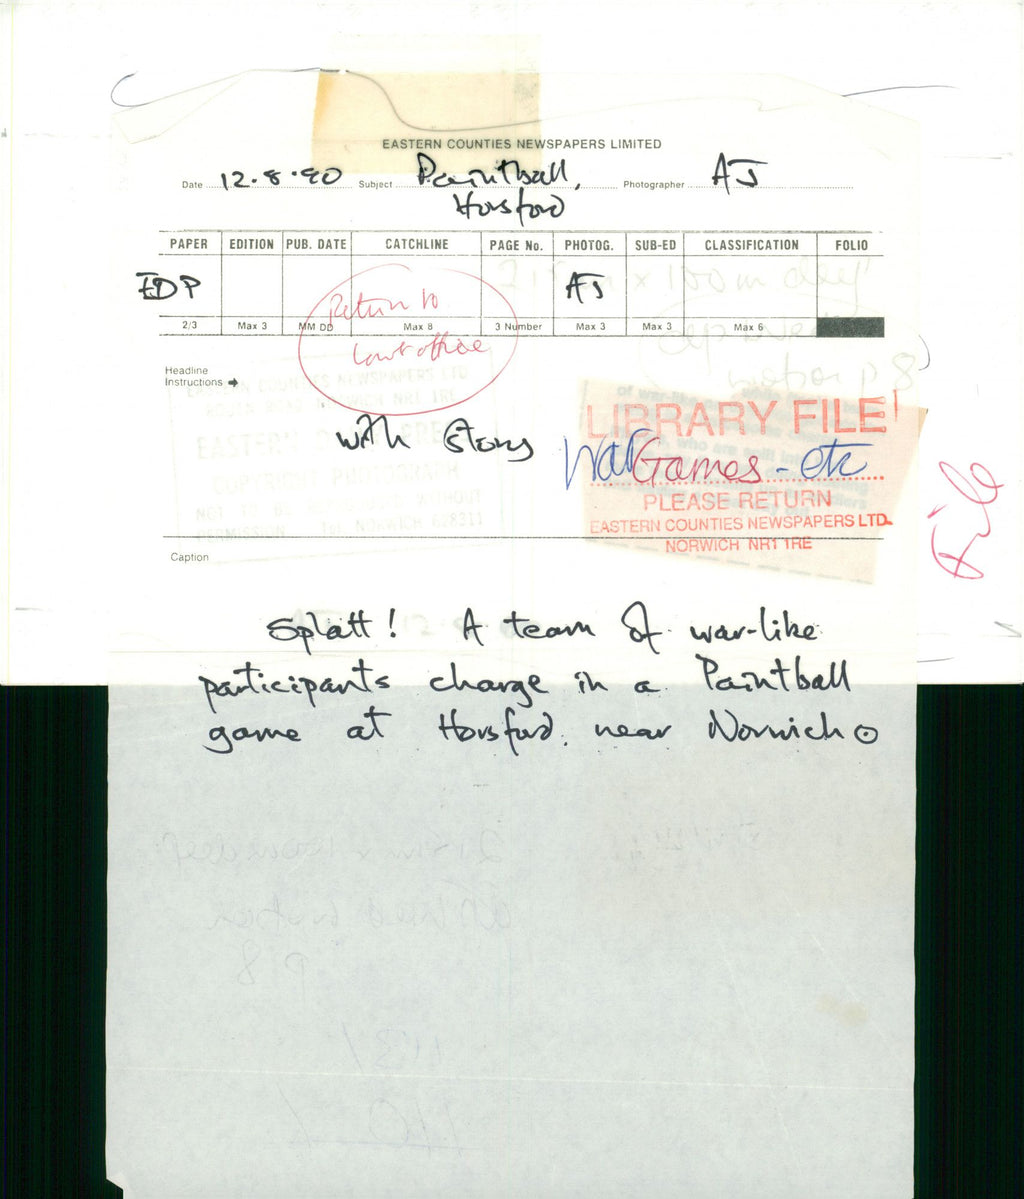 EASTERN COUNTIES NEWSPAPERS LIMITED
Date 12.8.90 Subject Paintball, Photographer AJ
Horsford
PAPER EDITION PUB. DATE CATCHLINE PAGE No. PHOTOG. SUB-ED CLASSIFICATION FOLIO
EDP AJ
2/3 Max 3 MM DD Max 8 3 Number Max 3 Max 3 Max 6
Return to
office
Headline
Instructions
EASTERN COUNTIES NEWSPAPERS LTD
ROUEN ROAD NORWICH NR1 1RE
COPYRIGHT PHOTOGRAPH
with Story
LIBRARY FILE
War Games - etc
PLEASE RETURN
EASTERN COUNTIES NEWSPAPERS LTD.
NORWICH NR1 1RE
File
Caption
Splatt! A team of war-like
participants charge in a Paintball
game at Horsford near Norwich